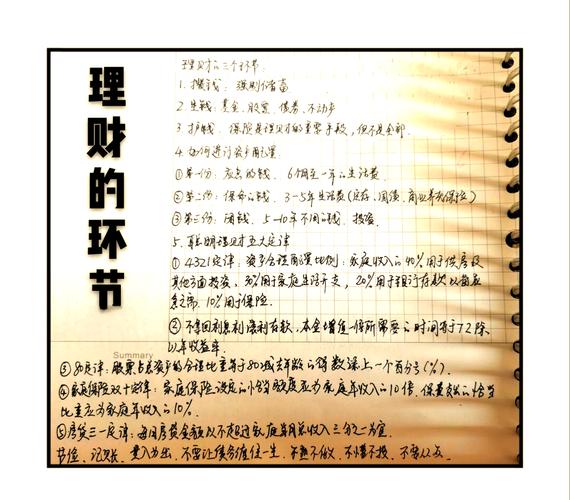 理财的环节
理财的三个环节:
1. 攒钱: 强制储蓄
2. 生钱: 基金、股票、债券、不动产
3. 护钱. 保险是理财的重要手段,但不是全部.
4. 如何进行资产配置
①第一份: 应急的钱. 6个月至一年的生活费
②第二份: 保命的钱. 3-5年生活费(定存、国债、商业养老保险)
③第三份: 闲钱. 5-10年不用的钱. 投资.
5. 聪明理财五大定律
① 4321定律: 资产合理配置比例: 家庭收入的40%用于供房及
其他方面投资, 30%用于家庭生活开支, 20%用于银行存款以备应
急之需. 10%用于保险.
② 不拿回利息利滚利存款, 本金增值一倍所需要的时间等于72除
以年收益率.
Summary
③80定律: 股票占总资产的合理比重等于80减去年龄的得数添上一个百分号(%).
④家庭保险双十定律: 家庭保险设定的恰当额度应为家庭年收入的10倍. 保费支出的恰当
比重应为家庭年收入的10%.
⑤房贷三一定律: 每月房贷金额以不超过家庭当月总收入三分之一为宜.
节俭、记账、量入为出、不要让债务缠住一生. 不熟不做、不懂不投、不